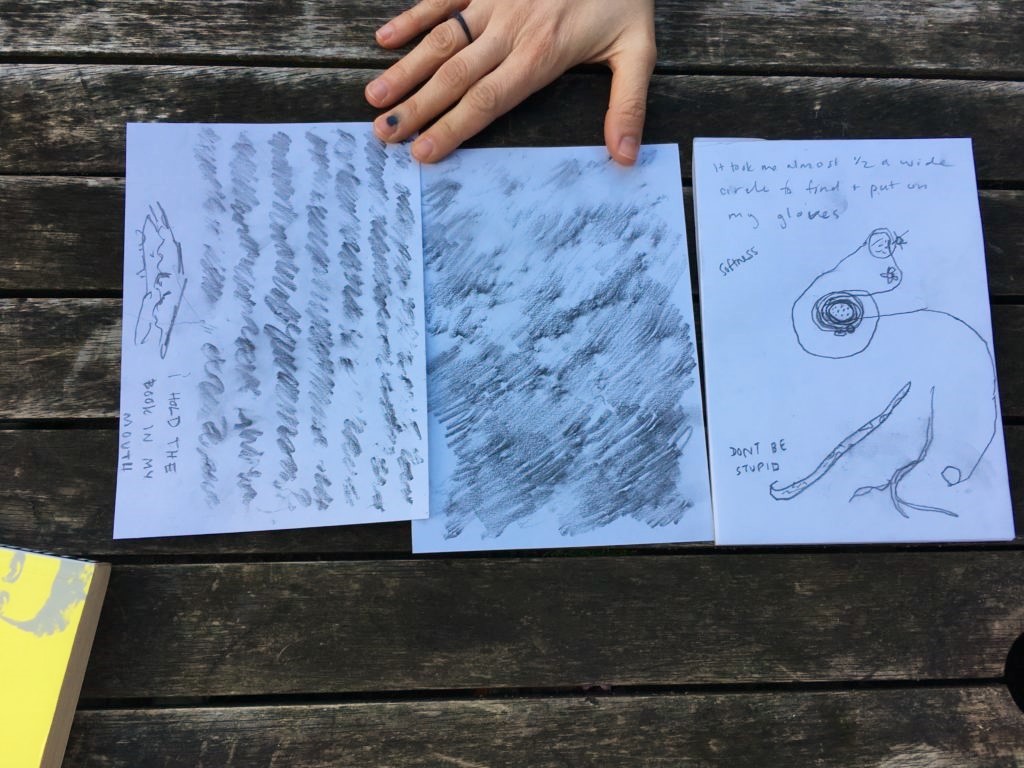 i HOLD THE
BOOK IN MY
MOUTH
It took me almost 1/2 a wide
circle to find + put on
my gloves
SOFTNESS
DONT BE
STUPID